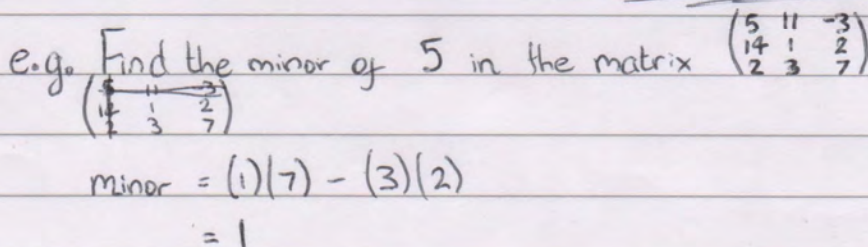 e.g. Find the minor of 5 in the matrix (5 11 -3
14 1 2
2 3 7)
(5 11 -3
14 1 2
2 3 7)
minor = (1)(7) - (3)(2)
= 1